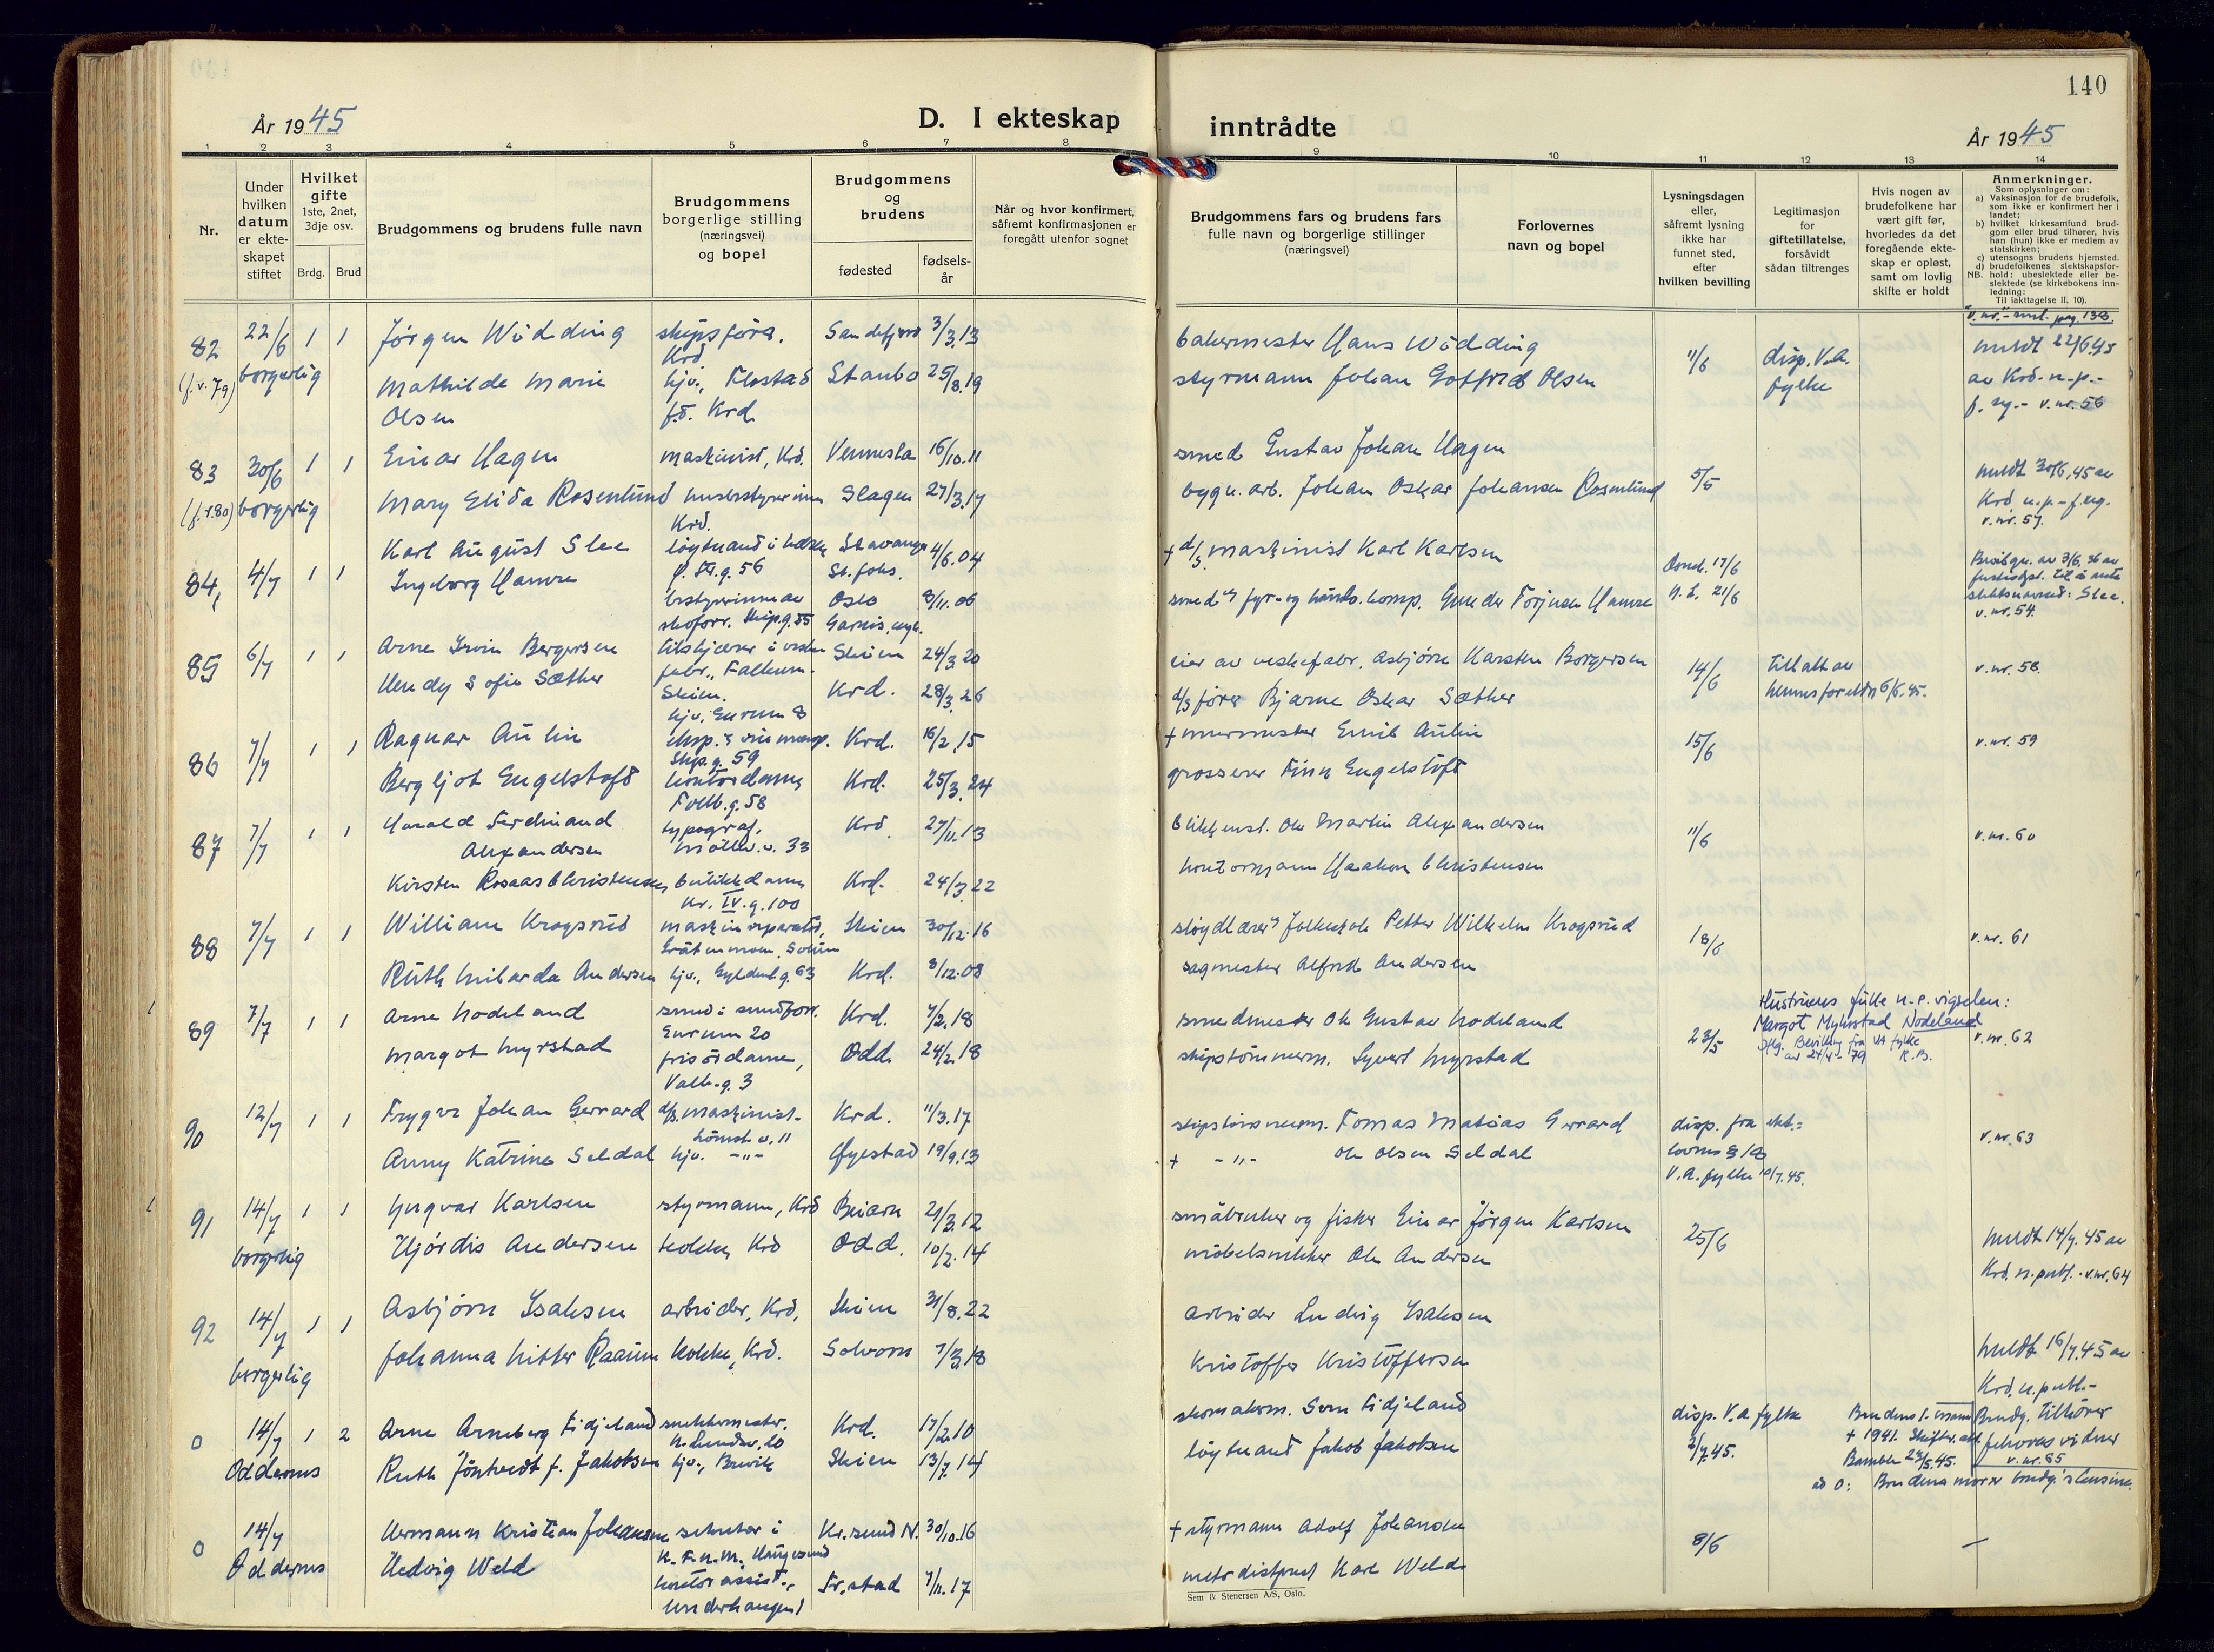 140
År 1945
D. I ekteskap
inntrådte
År 1945
1 2 3 4 5 6 7 8 9 10 11 12 13 14
Nr.
Under
hvilken
datum
er ekte-
skapet
stiftet
Hvilket
gifte
1ste, 2net,
3dje osv.
Brdg.
Brud
Brudgommens og brudens fulle navn
Brudgommens
borgerlige stilling
(næringsvei)
og bopel
Brudgommens
og
brudens
fødested
fødsels-
år
Når og hvor konfirmert,
såfremt konfirmasjonen er
foregått utenfor sognet
Brudgommens fars og brudens fars
fulle navn og borgerlige stillinger
(næringsvei)
Forlovernes
navn og bopel
Lysningsdagen
eller,
såfremt lysning
ikke har
funnet sted,
efter
hvilken bevilling
Legitimasjon
for
giftetillatelse,
forsåvidt
sådan tiltrenges
Hvis nogen av
brudefolkene har
vært gift før,
hvorledes da det
foregående ekte-
skap er opløst,
samt om lovlig
skifte er holdt
Anmerkninger.
Som oplysninger om:
a) Vaksinasjon for de brudefolk,
som ikke er konfirmert her i
landet;
b) hvilket kirkesamfund brud-
gom eller brud tilhører, hvis
han (hun) ikke er medlem av
statskirken;
c) utensogns brudens hjemsted.
d) brudefolkenes slektskapsfor-
NB. hold: ubeslektede eller be-
slektede (se kirkebokens inn-
ledning:
Til iakttagelse II, 10).
82 22/6 1 1 Jørgen Wødding skipsfører. Sandefjord 3/3.13 bakermester Hans Wødding 11/6 disp. V.A. meldt 22/6.45
(f.v. 79) borgerlig Krd
Mathilde Marie hjv., Flostad Staubo 25/8.19 styrmann Johan Gotfred Olsen fylke av Krd. n.p.-
Olsen f.ö. Krd v.nr. 56
83 30/6 1 1 Einar Hagen maskinist, Krd. Vennesla 16/10.11 smed Gustav Johan Hagen 5/5 meldt 30/6.45 av
(f.v.80) borgerlig Mary Elida Rosenlund husbestyrerinne Slagen 27/3.17 bygn. arb. Johan Oskar Johansen Rosenlund Krd. n.p.
Krd. v.nr. 57.
84, 4/7 1 1 Karl August Slee løytnant i Stavanger 4/6.04 + d/s. maskinist Karl Karlsen 17/6
Ingeborg Hamre bestyrerinne av Oslo 8/11.06 21/6
skoforr. Skip.g. 55 Garnis. v.nr. 54
85 6/7 1 1 Arne Irvin Borgersen Skien 24/3 20 eier av veskefabr. Asbjørn Karsten Borgersen 14/6 Tillatt av v.nr. 58
Wendy Sofie Sæther Skien. Krd. 28/3.26 d/s fører Bjarne Oskar Sæther hennes foreldre 6/6.45.
86 7/7 1 1 Ragnar Aulin Krd. 16/2.15 + murmester Emil Aulin 15/6 v.nr. 59
Skip.g. 59
Bergljot Engelstoft kontordame Krd. 25/3.24 grosserer Finn Engelstoft
Tollb.g. 58
87 7/7 1 1 Harald Ferdinand typograf, Krd 27/11.13 blikkensl. Ole Martin Alexandersen 11/6 v.nr. 60
Alexandersen v. 33
Kirsten Rosaas Christensen butikkdame Krd. 24/3.22 kontormann Haakon Christensen
Kr. IV.g.100
88 7/7 1 1 William Krogsrud maskinreparatør, Skien 30/12.16 sløydlærer v/ folkeskole Petter Wilhelm Krogsrud 18/6 v.nr. 61
Ruth Andersen hjv., Gyldenl.g. 63 Krd. 8/12.08 sagmester Alfred Andersen
89 7/7 1 1 Arne Nodeland smed i smedforr. Krd. 7/2.18 smedmester Ole Gustav Nodeland 23/5 Hustruens fulle n. e. vigselen:
Enrum 20 Margot Myhrstad Nodeland
Margot Myrstad frisördame, Odd. 24/2.18 skipstömmerm. Syvert Myrstad Iflg. Bevilling fra VA fylke v.nr. 62
Valh.g. 3 av 24/4-79 K.B.
90 12/7 1 1 Trygve Johan Gerrard d/s. maskinist. Krd. 11/3.17 skipstömmerm. Tomas Matias Gerrard disp. fra ekt.= v.nr. 63
v. 11
Anny Katrine Seldal hjv. -"- Øyestad 19/9.13 + -"- Ole Olsen Seldal lovens § 18
V.A. fylke 10/7.45.
91 14/7 1 1 Yngvar Karlsen styrmann, Krd Beiarn 21/3.12 småbruker og fisker Einar Jörgen Karlsen 25/6 meldt 14/7.45 av
borgerlig Hjördis Andersen kokke, Krd Odd. 10/2.14 möbelsnekker Ole Andersen Krd. n.publ. - v.nr. 64
92 14/7 1 1 Asbjørn Isaksen arbeider, Krd. Skien 31/8.22 arbeider Ludvig Isaksen meldt 16/7.45 av
borgerlig Johanna Raaum kokke, Krd. Solvorn 7/3.18 Kristoffer Kristoffersen Krd. n.publ.-
0 14/7 1 2 Arne Arneberg Tidjeland snekkermester. Krd. 17/2.10 skomakerm. Sven Tidjeland disp. V.A fylke Brudens 1. mann Brudg. tilhører
Oddernes 2/7.45. + 1941. Jehovas vidner
Ruth f. Jakobsen hjv., Brevik Skien 13/7.14 løytnant Jakob Jakobsen Bamble 24/5.45. v.nr. 65
ad 0:
0 14/7 Hermann Kristian Johansen sekretær i Kr.sund N. 30/10.16 + styrmann Adolf Johansen 8/6 —
Oddernes K.F.U.M. Haugesund
Hedvig Weld kontorassist., Fr.stad 7/11.17 metodistprest Karl Weld
Sem & Stenersen A/S, Oslo.